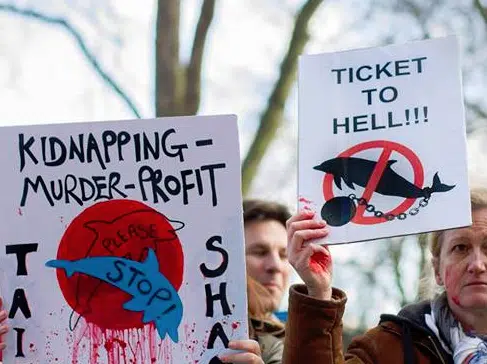 KIDNAPPING-
MURDER-PROFIT
TAI
PLEASE
STOP!
SHA
TICKET
TO
HELL!!!